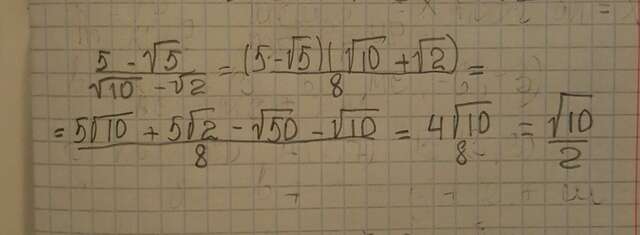 (5 - √5)/(√10 - √2) = ((5 - √5)(√10 + √2))/8 =
= (5√10 + 5√2 - √50 - √10)/8 = 4√10/8 = √10/2